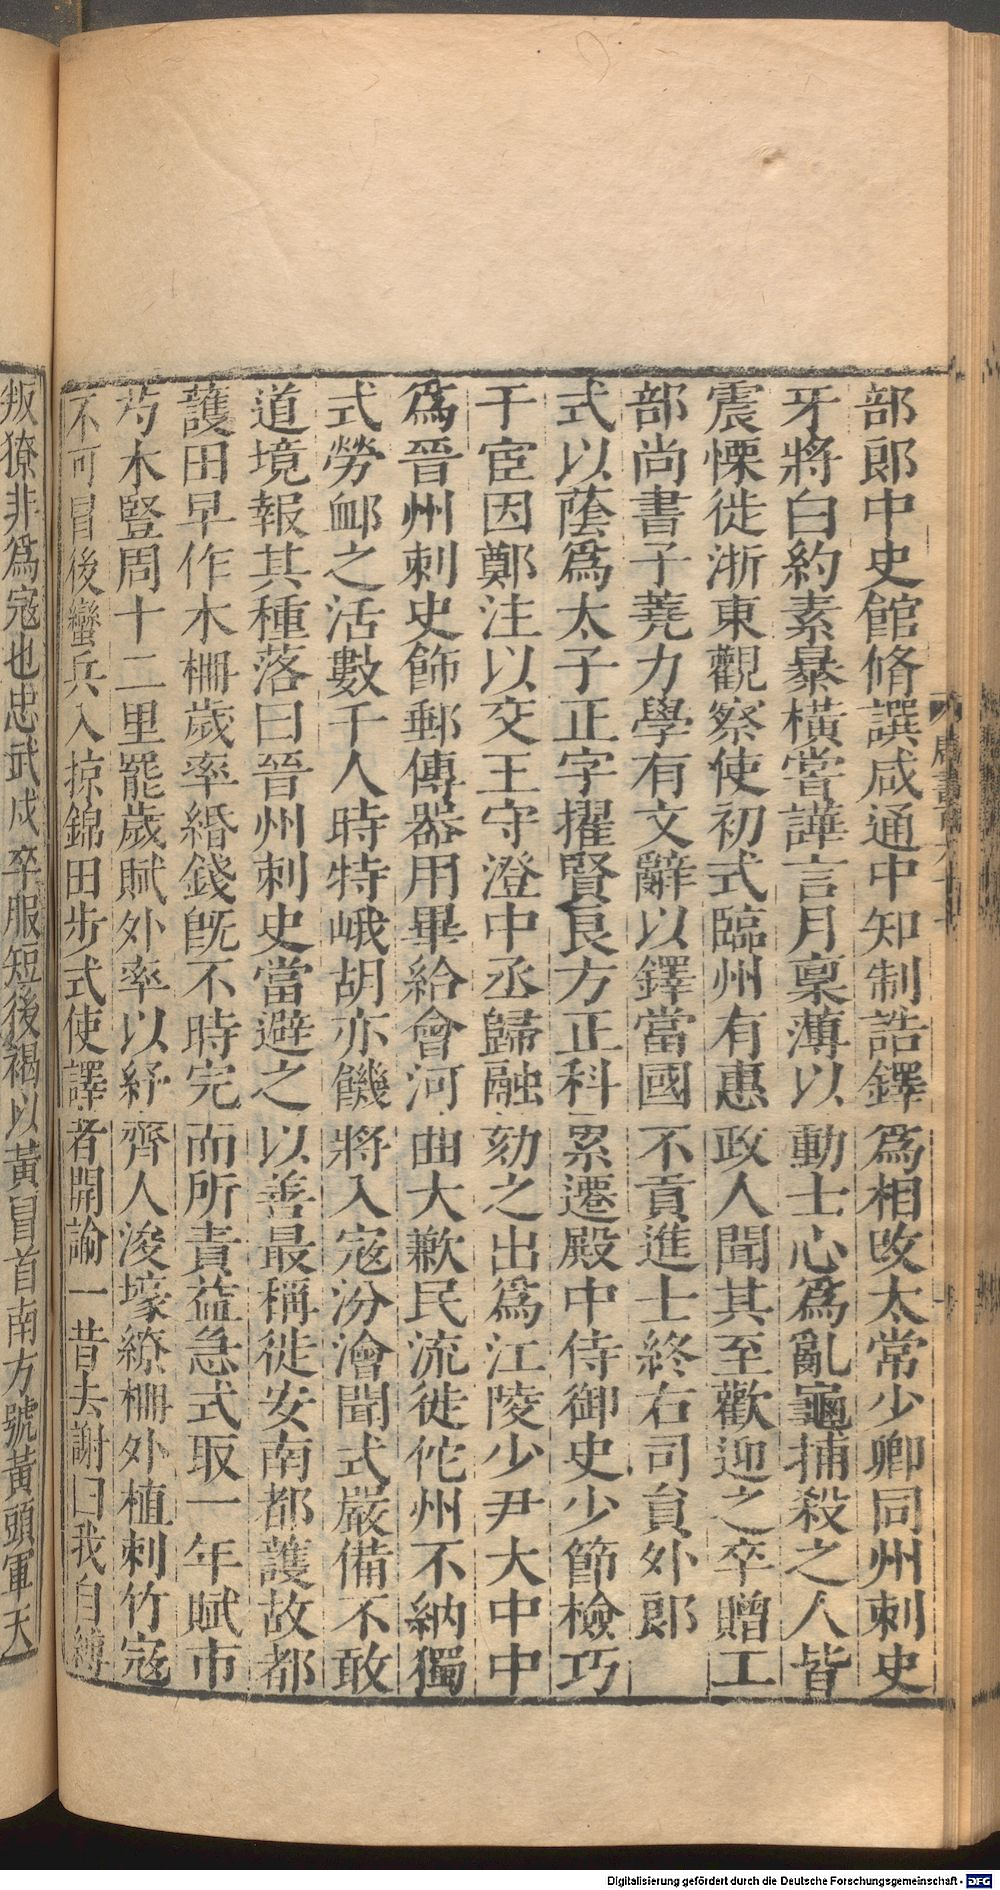 部郎中史館脩譔咸通中知制誥鐸爲相改太常少卿同州刺史
牙將白約素暴橫嘗譁言月稟薄以動士心爲亂龜捕殺之人皆
震慄徙浙東觀察使初式臨州有惠政人聞其至歡迎之卒贈工
部尚書子蕘力學有文辭以鐸當國不貢進士終右司員外郎
式以蔭爲太子正字擢賢良方正科累遷殿中侍御史少節檢巧
于宦因鄭注以交王守澄中丞歸融劾之出爲江陵少尹大中中
爲晉州刺史飾郵傳器用畢給會河曲大歉民流徙佗州不納獨
式勞卹之活數千人時特峨胡亦饑將入寇汾澮聞式嚴備不敢
道境報其種落曰晉州刺史當避之以善最稱徙安南都護故都
護田早作木柵歲率緡錢旣不時完而所責益急式取一年賦市
芍木豎周十二里罷歲賦外率以紓齊人浚壕繚柵外植刺竹寇
不可冒後蠻兵入掠錦田步式使譯者開諭一昔去謝曰我自縛
叛獠非爲寇也忠武戍卒服短後褐以黃冒首南方號黃頭軍天
Digitalisierung gefördert durch die Deutsche Forschungsgemeinschaft - DFG